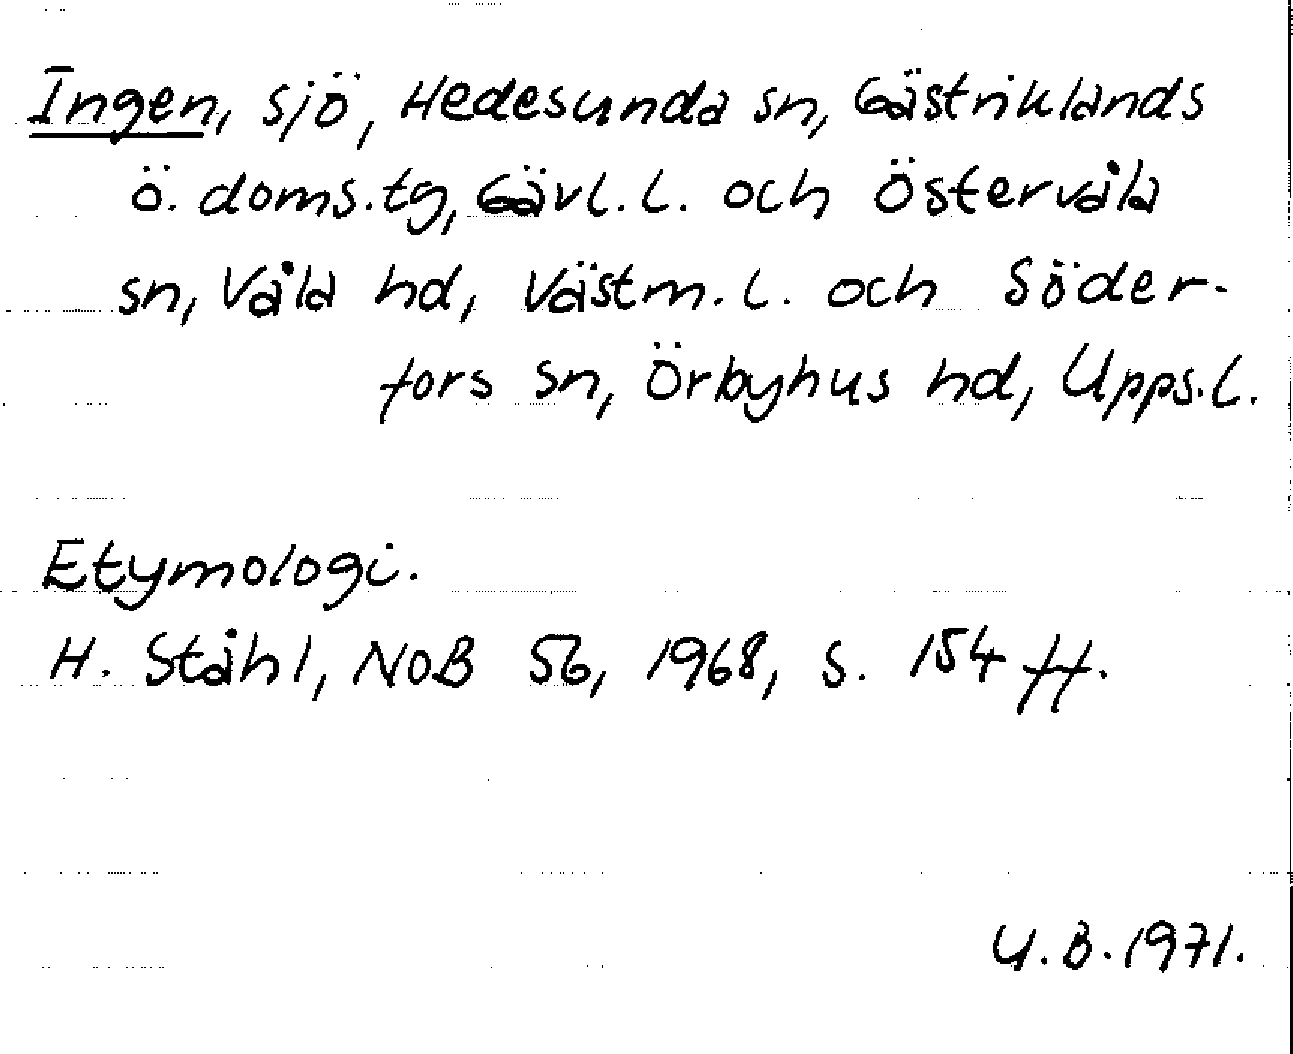 Ingen, sjö, Hedesunda sn, Gästriklands
ö. doms.tg, Gävl.l. och Östervåla
sn, Våla hd, Västm.l. och Söder-
fors sn, Örbyhus hd, Upps.l.
Etymologi.
H. Ståhl, NoB 56, 1968, s. 154 ff.
U.B.1971.